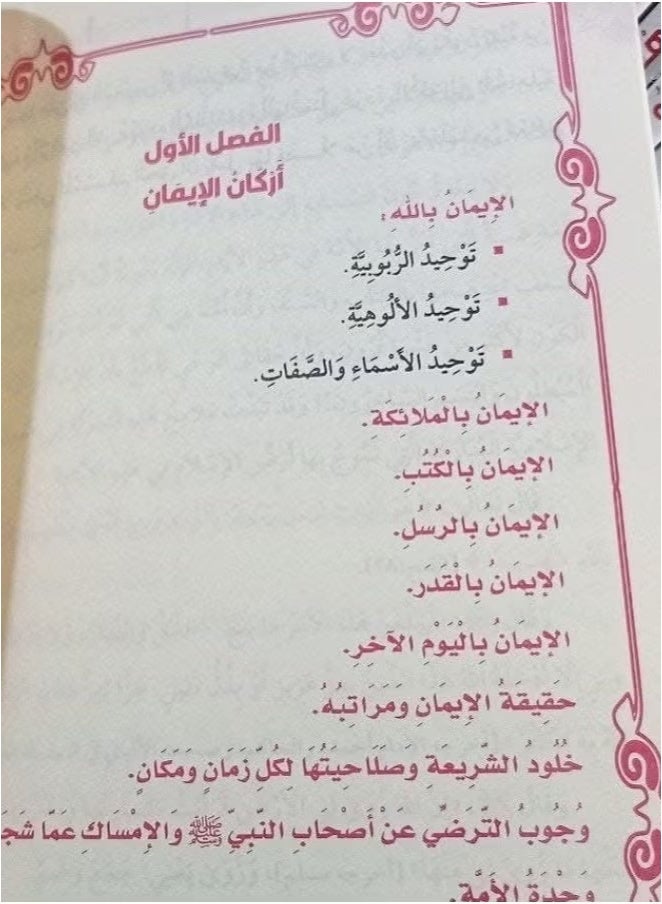 الفصل الأول
أَرْكَانُ الإِيمَانِ
الإِيمَانُ بِاللهِ :
▪ تَوْحِيدُ الرُّبُوبِيَّةِ.
▪ تَوْحِيدُ الأُلُوهِيَّةِ.
▪ تَوْحِيدُ الأَسْمَاءِ وَالصَّفَاتِ.
الإِيمَانُ بِالْمَلَائِكَةِ.
الإِيمَانُ بِالْكُتُبِ.
الإِيمَانُ بِالرُّسُلِ.
الإِيمَانُ بِالْقَدَرِ.
الإِيمَانُ بِالْيَوْمِ الآخِرِ.
حَقِيقَةُ الإِيمَانِ وَمَرَاتِبُهُ.
خُلُودُ الشَّرِيعَةِ وصَلَاحِيَتُهَا لِكُلِّ زَمَانٍ وَمَكَانٍ.
وُجُوبُ التَّرَضِّي عَنْ أَصْحَابِ النَّبِيِّ ﷺ والإِمْسَاكِ عَمَّا
وَحْدَةُ الأُمَّةِ.